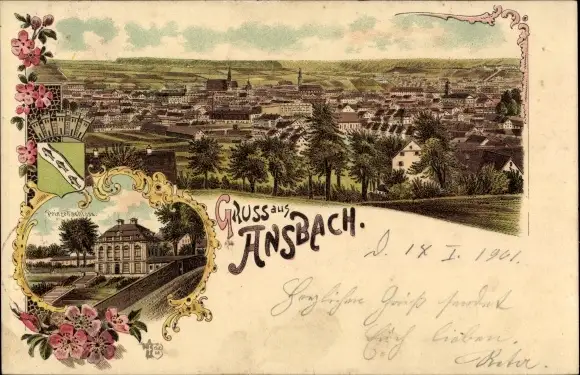 Prinzenschloss.
Gruss aus
Ansbach.
D. 18 I. 1901.
Herzlichen Gruß sendet
Euch lieben.